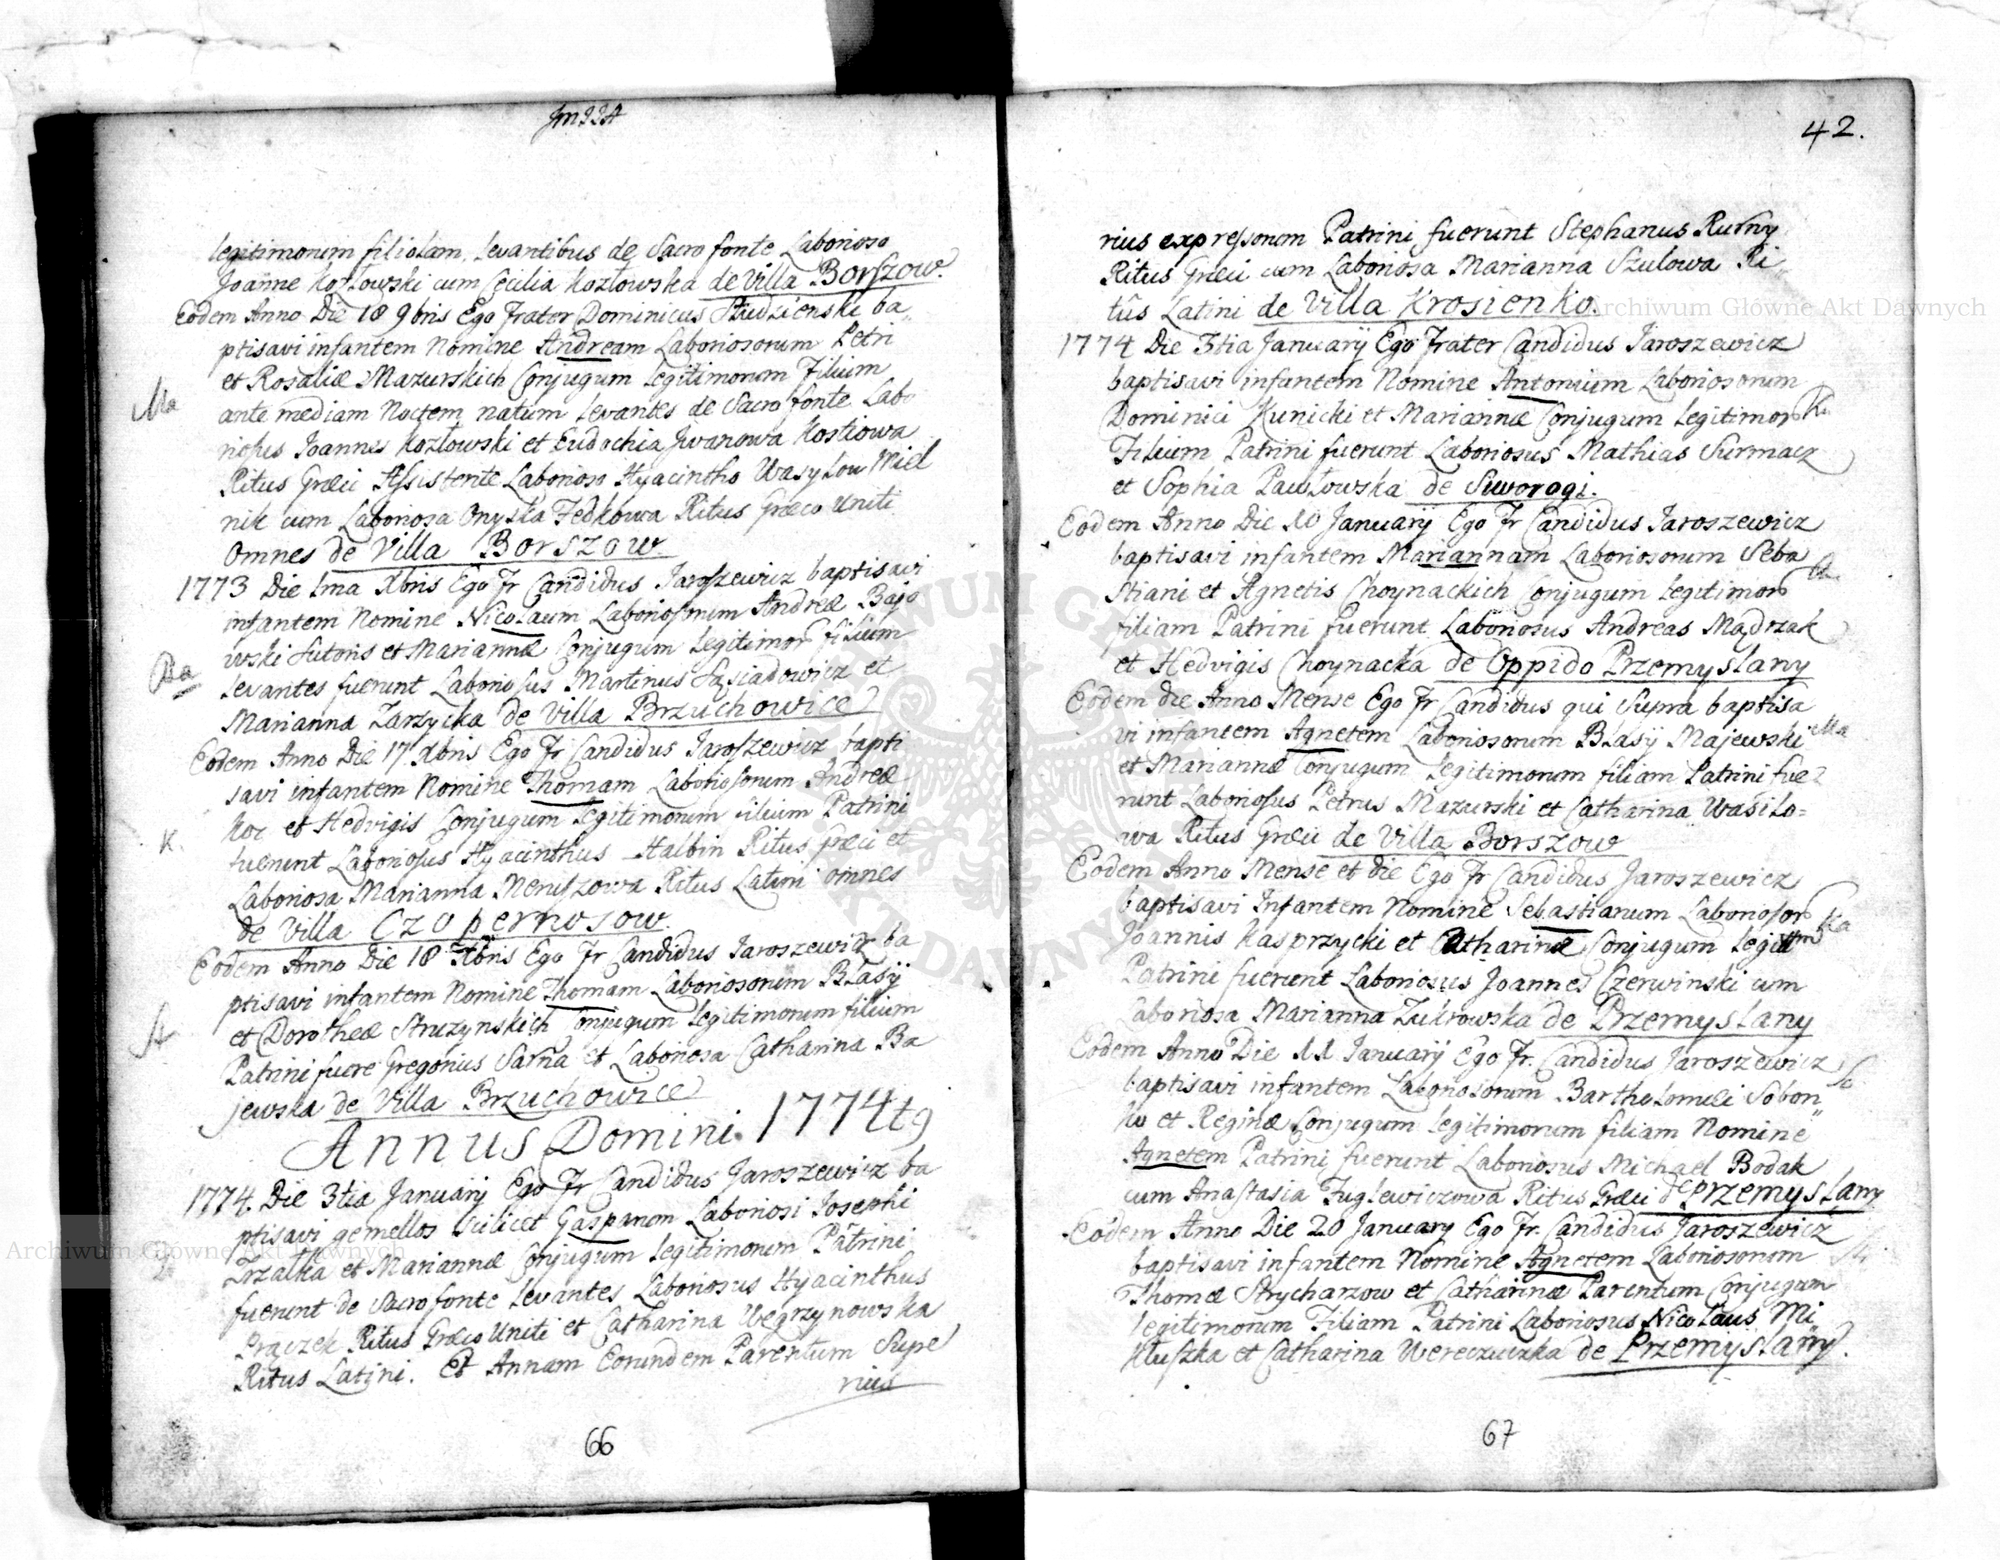 legitimorum filiolam, levantibus de Sacro fonte Laborioso
Joanne Kozłowski cum Cecilia Kozłowska de Villa Borszow.
Eodem Anno Die 18 9bris Ego Frater Dominicus Studzienski ba„
ptisavi infantem Nomine Andream Laboriosorum Petri
et Rosaliæ Mazurskich Conjugum Legitimorum Filium
Ma
ante mediam Noctem natum Levantes de Sacro fonte Labo
riosus Joannes Kozłowski et Eudochia Jwanowa Kostiowa
Ritus Græci Assistente Laborioso Hyacintho Wasylow Miel
nik cum Laboriosa Onyska Fedkowa Ritus Græco Uniti
Omnes de Villa Borszow.
1773 Die 1ma Xbris Ego Fr Candidus Jaroszewicz baptisavi
infantem Nomine Nicolaum Laboriosorum Andreæ Bajo
wski Sutoris et Mariannæ Conjugum Legitimor filium
Ba
Levantes fuerunt Laboriosus Martinus Sąsiadowicz et
Marianna Zarzycka de Villa Brzuchowice
Eodem Anno Die 17 Xbris Ego Fr Candidus Jaroszewicz bapti
savi infantem Nomine Thomam Laboriosorum Andreæ
Koc et Hedvigis Conjugum Legitimorum filium Patrini
K.
fuerunt Laboriosus Hyacinthus Halbin Ritus Græci et
Laboriosa Marianna Neruszowa Ritus Latini omnes
de Villa Czopernosow.
Eodem Anno Die 18 Xbris Ego Fr Candidus Jaroszewicz ba
ptisavi infantem Nomine Thomam Laboriosorum Blasij
et Dorotheæ Struzynskich Conjugum Legitimorum filium
Patrini fuere Gregorius Sarna et Laboriosa Catharina Ba
jewska de Villa Brzuchowice
Annus Domini 1774tq
1774. Die 3tia Januarij Ego Fr Candidus Jaroszewicz ba
ptisavi gemellos scilicet Gasparum Laboriosi Josephi
Trzaska et Mariannæ Conjugum Legitimorum Patrini
fuerunt de Sacro fonte Levantes Laboriosus Hyacinthus
Prączek Ritus Græco Uniti et Catharina Węgrzynowska
Ritus Latini. Et Annam Eorundem Parentum Supe
rius
66
42.
rius expressorum Patrini fuerunt Stephanus Rurny
Ritus Græci cum Laboriosa Marianna Szulowa Ri
tûs Latini de Villa Krosienko.
1774 Die 3tia Januarij Ego Frater Candidus Jaroszewicz
baptisavi infantem Nomine Antonium Laboriosorum
Dominici Kunicki et Mariannæ Conjugum Legitimor Ku
Filium Patrini fuerunt Laboriosus Mathias Surmacz
et Sophia Pawłowska de Sworogi.
Eodem Anno Die 10 Januarij Ego Fr Candidus Jaroszewicz
baptisavi infantem Mariannam Laboriosorum Seba
stiani et Agnetis Choynackich Conjugum Legitimor Ch.
filiam Patrini fuerunt Laboriosus Andreas Mądrzak
et Hedvigis Choynacka de Oppido Przemyslany
Eodem die Anno Mense Ego Fr Candidus qui Supra baptisa
vi infantem Agnetem Laboriosorum Blasij Majewski Ma
et Mariannæ Conjugum Legitimorum filiam Patrini fue
runt Laboriosus Petrus Mazurski et Catharina Wasilo=
wa Ritus Græci de Villa Borszow
Eodem Anno Mense et die Ego Fr Candidus Jaroszewicz
baptisavi Infantem Nomine Sebastianum Laboriosor Ka
Joannis Kasprzycki et Catharinæ Conjugum Legittm
Patrini fuerunt Laboriosus Joannes Czerwinski cum
Laboriosa Marianna Zukrowska de Przemyslany
Eodem Anno Die 11 Januarij Ego Fr. Candidus Jaroszewicz So
baptisavi infantem Laboriosorum Bartholomei Sobon
ku et Reginæ Conjugum Legitimorum filiam Nomine
Agnetem Patrini fuerunt Laboriosus Michael Bodak
cum Anastasia Fuglewiczowa Ritus Græci de Przemyslany
Eodem Anno Die 20 January Ego Fr. Candidus Jaroszewicz
baptisavi infantem Nomine Agnetem Laboriosorum
Thomæ Strycharzow et Catharinæ Parentum Conjugum
Legitimorum Filiam Patrini Laboriosus Nicolaus Mi
kłuszka et Catharina Wereczuczka de Przemyslany.
67
Archiwum Główne Akt Dawnych
Archiwum Główne Akt Dawnych
ARCHIWUM GŁÓWNE AKT DAWNYCH